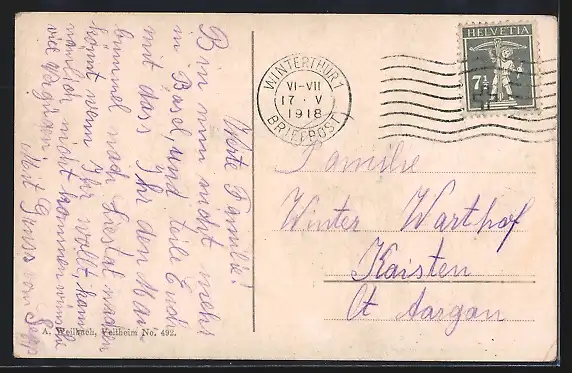 Werte Familie!
Bin nun nicht mehr
in Basel, und teile Euch
mit dass Ihr den Mai-
bummel nach Liestal machen
könnt wenn Ihr wollt, kann
nicht kommen
viel Vergnügen.
Mit Gruss von
A. Weilbach, Veltheim No. 492.
WINTERTHUR 1
VI-VII
17 · V
1918
BRIEFPOST
HELVETIA
7½
Familie
Winter Warthof
Kaisten
Ct Aargau